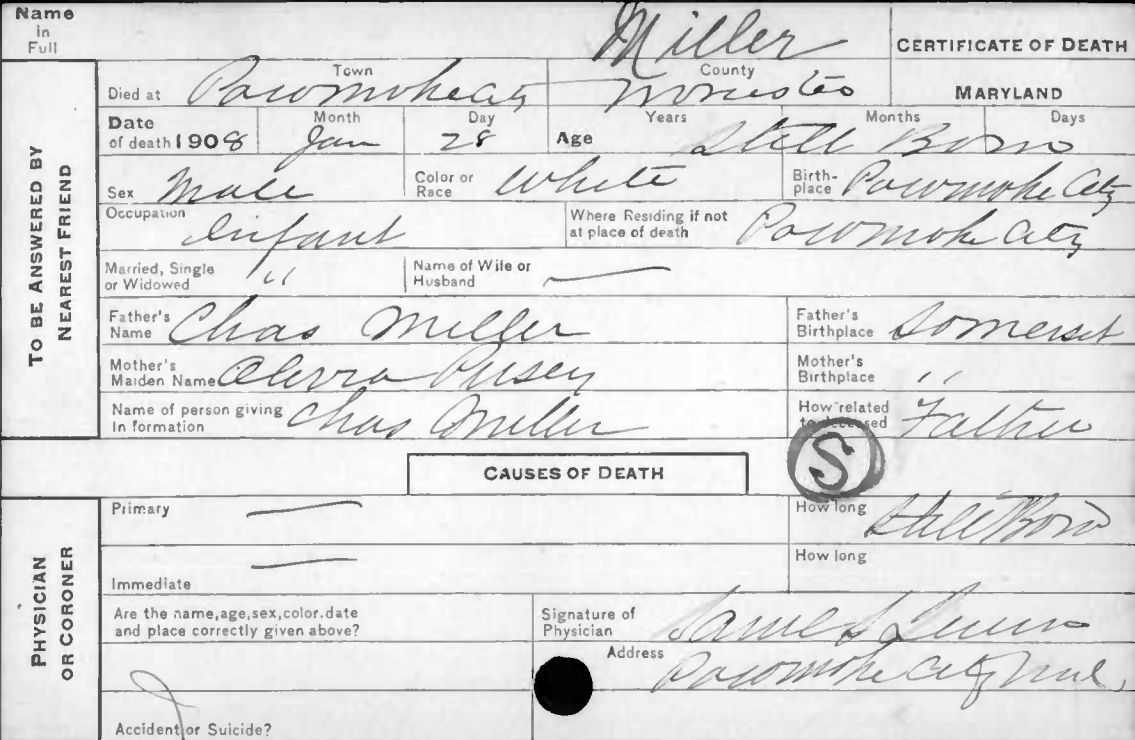 Name In Full Miller CERTIFICATE OF DEATH
TO BE ANSWERED BY NEAREST FRIEND
Died at Town Pocomoke City County Worcester MARYLAND
Date of death 1908 Month Jan Day 28 Age Years Months Days Still Born
Sex Male Color or Race White Birth-place Pocomoke City
Occupation Infant Where Residing if not at place of death Pocomoke City
Married, Single or Widowed " Name of Wife or Husband —
Father's Name Chas Miller Father's Birthplace Somerset
Mother's Maiden Name Pusey Mother's Birthplace "
Name of person giving In formation Chas Miller How related to deceased Father
S
CAUSES OF DEATH
PHYSICIAN OR CORONER
Primary — How long Still Born
Immediate — How long
Are the name,age,sex,color.date and place correctly given above? Signature of Physician James
Address Pocomoke City Md.
Accident or Suicide?